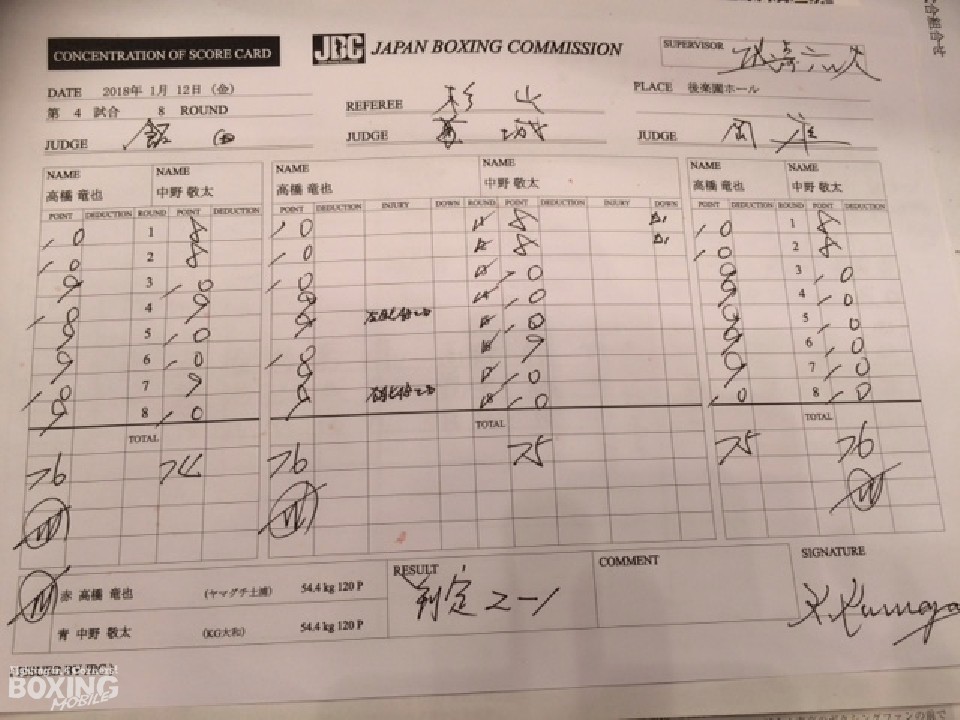 CONCENTRATION OF SCORE CARD
JBC JAPAN BOXING COMMISSION
SUPERVISOR
DATE 2018年 1月 12日 (金)
第 4 試合 8 ROUND
REFEREE 杉山
PLACE 後楽園ホール
JUDGE 飯田
JUDGE 葛城
JUDGE
NAME 高橋 竜也
NAME 中野 敬太
NAME 高橋 竜也
NAME 中野 敬太
NAME 高橋 竜也
NAME 中野 敬太
POINT DEDUCTION ROUND POINT DEDUCTION
POINT DEDUCTION INJURY DOWN ROUND POINT DEDUCTION INJURY DOWN
POINT DEDUCTION ROUND POINT DEDUCTION
10 1 8 10 8 10 1 8
10 2 8 10 8 10 2 8
9 3 10 10 9 3 10
10 4 9 10 9 4 10
9 5 10 9 10 9 5 10
9 6 10 10 9 9 6 10
10 7 9 9 10 9 7 10
9 8 10 9 10 10 8 10
TOTAL TOTAL TOTAL
76 74 76 75 75 76
W W W
W 赤 高橋 竜也 (ヤマグチ土浦) 54.4 kg 120 P
青 中野 敬太 (KG大和) 54.4 kg 120 P
RESULT
判定 2-1
COMMENT
SIGNATURE
BOXING
MOBILE